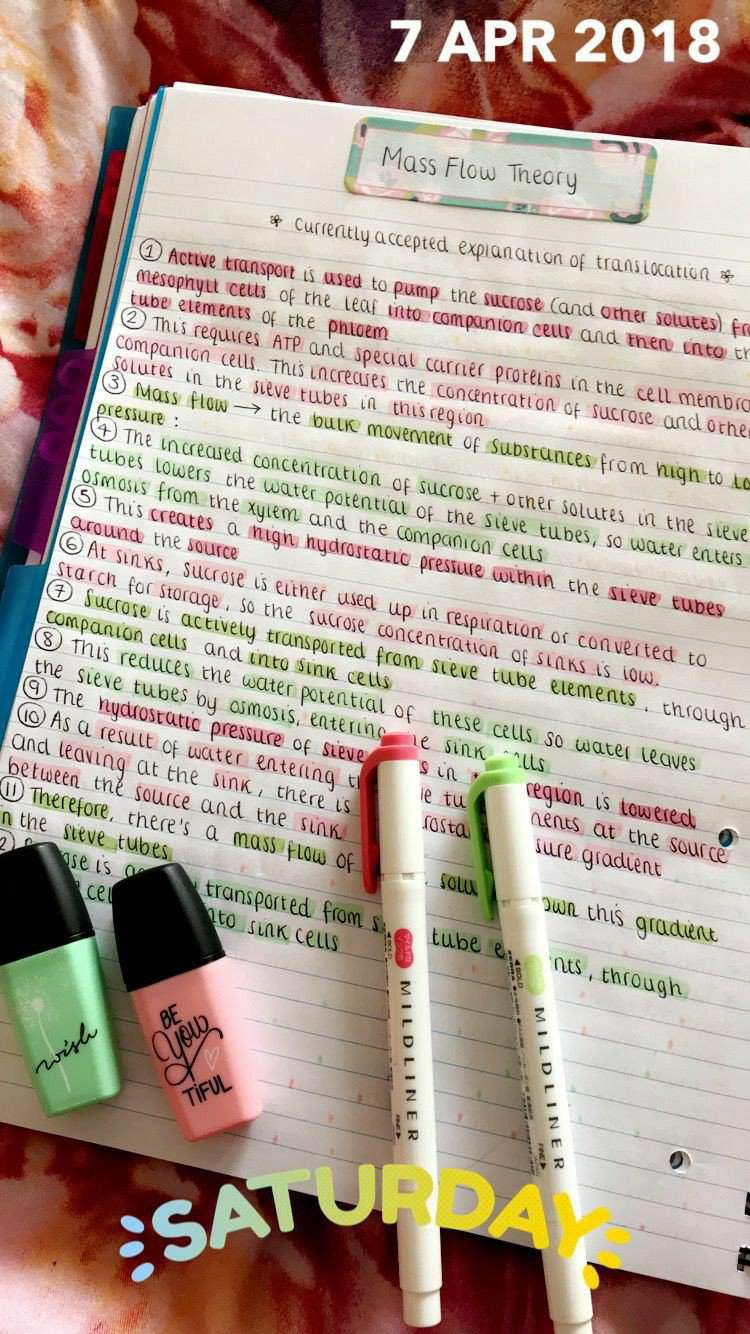 7 APR 2018
Mass Flow Theory
Currently accepted explanation of translocation
① Active transport is used to pump the sucrose (and other solutes) fr
mesophyll cells of the leaf into companion cells and then into th
tube elements of the phloem
② This requires ATP and special carrier proteins in the cell membra
companion cells. This increases the concentration of sucrose and other
solutes in the sieve tubes in this region
③ Mass flow → the bulk movement of substances from high to lo
pressure :
④ The increased concentration of sucrose + other solutes in the sieve
tubes lowers the water potential of the sieve tubes, so water enters
osmosis from the xylem and the companion cells
⑤ This creates a high hydrostatic pressure within the sieve tubes
around the source
⑥ At sinks, sucrose is either used up in respiration or converted to
starch for storage, so the sucrose concentration of sinks is low.
⑦ Sucrose is actively transported from sieve tube elements, through
companion cells and into sink cells
⑧ This reduces the water potential of these cells so water leaves
the sieve tubes by osmosis, entering sink
⑨ The hydrostatic pressure of sieve in region is lowered
⑩ As a result of water entering at the source
and leaving at the sink, there is gradient
between the source and the sink
⑪ Therefore, there's a mass flow of down this gradient
in the sieve tubes
is transported from tube , through
into sink cells
wish
BE
YOU
TIFUL
BOLD MILDLINER FINE
BOLD MILDLINER FINE
SATURDAY